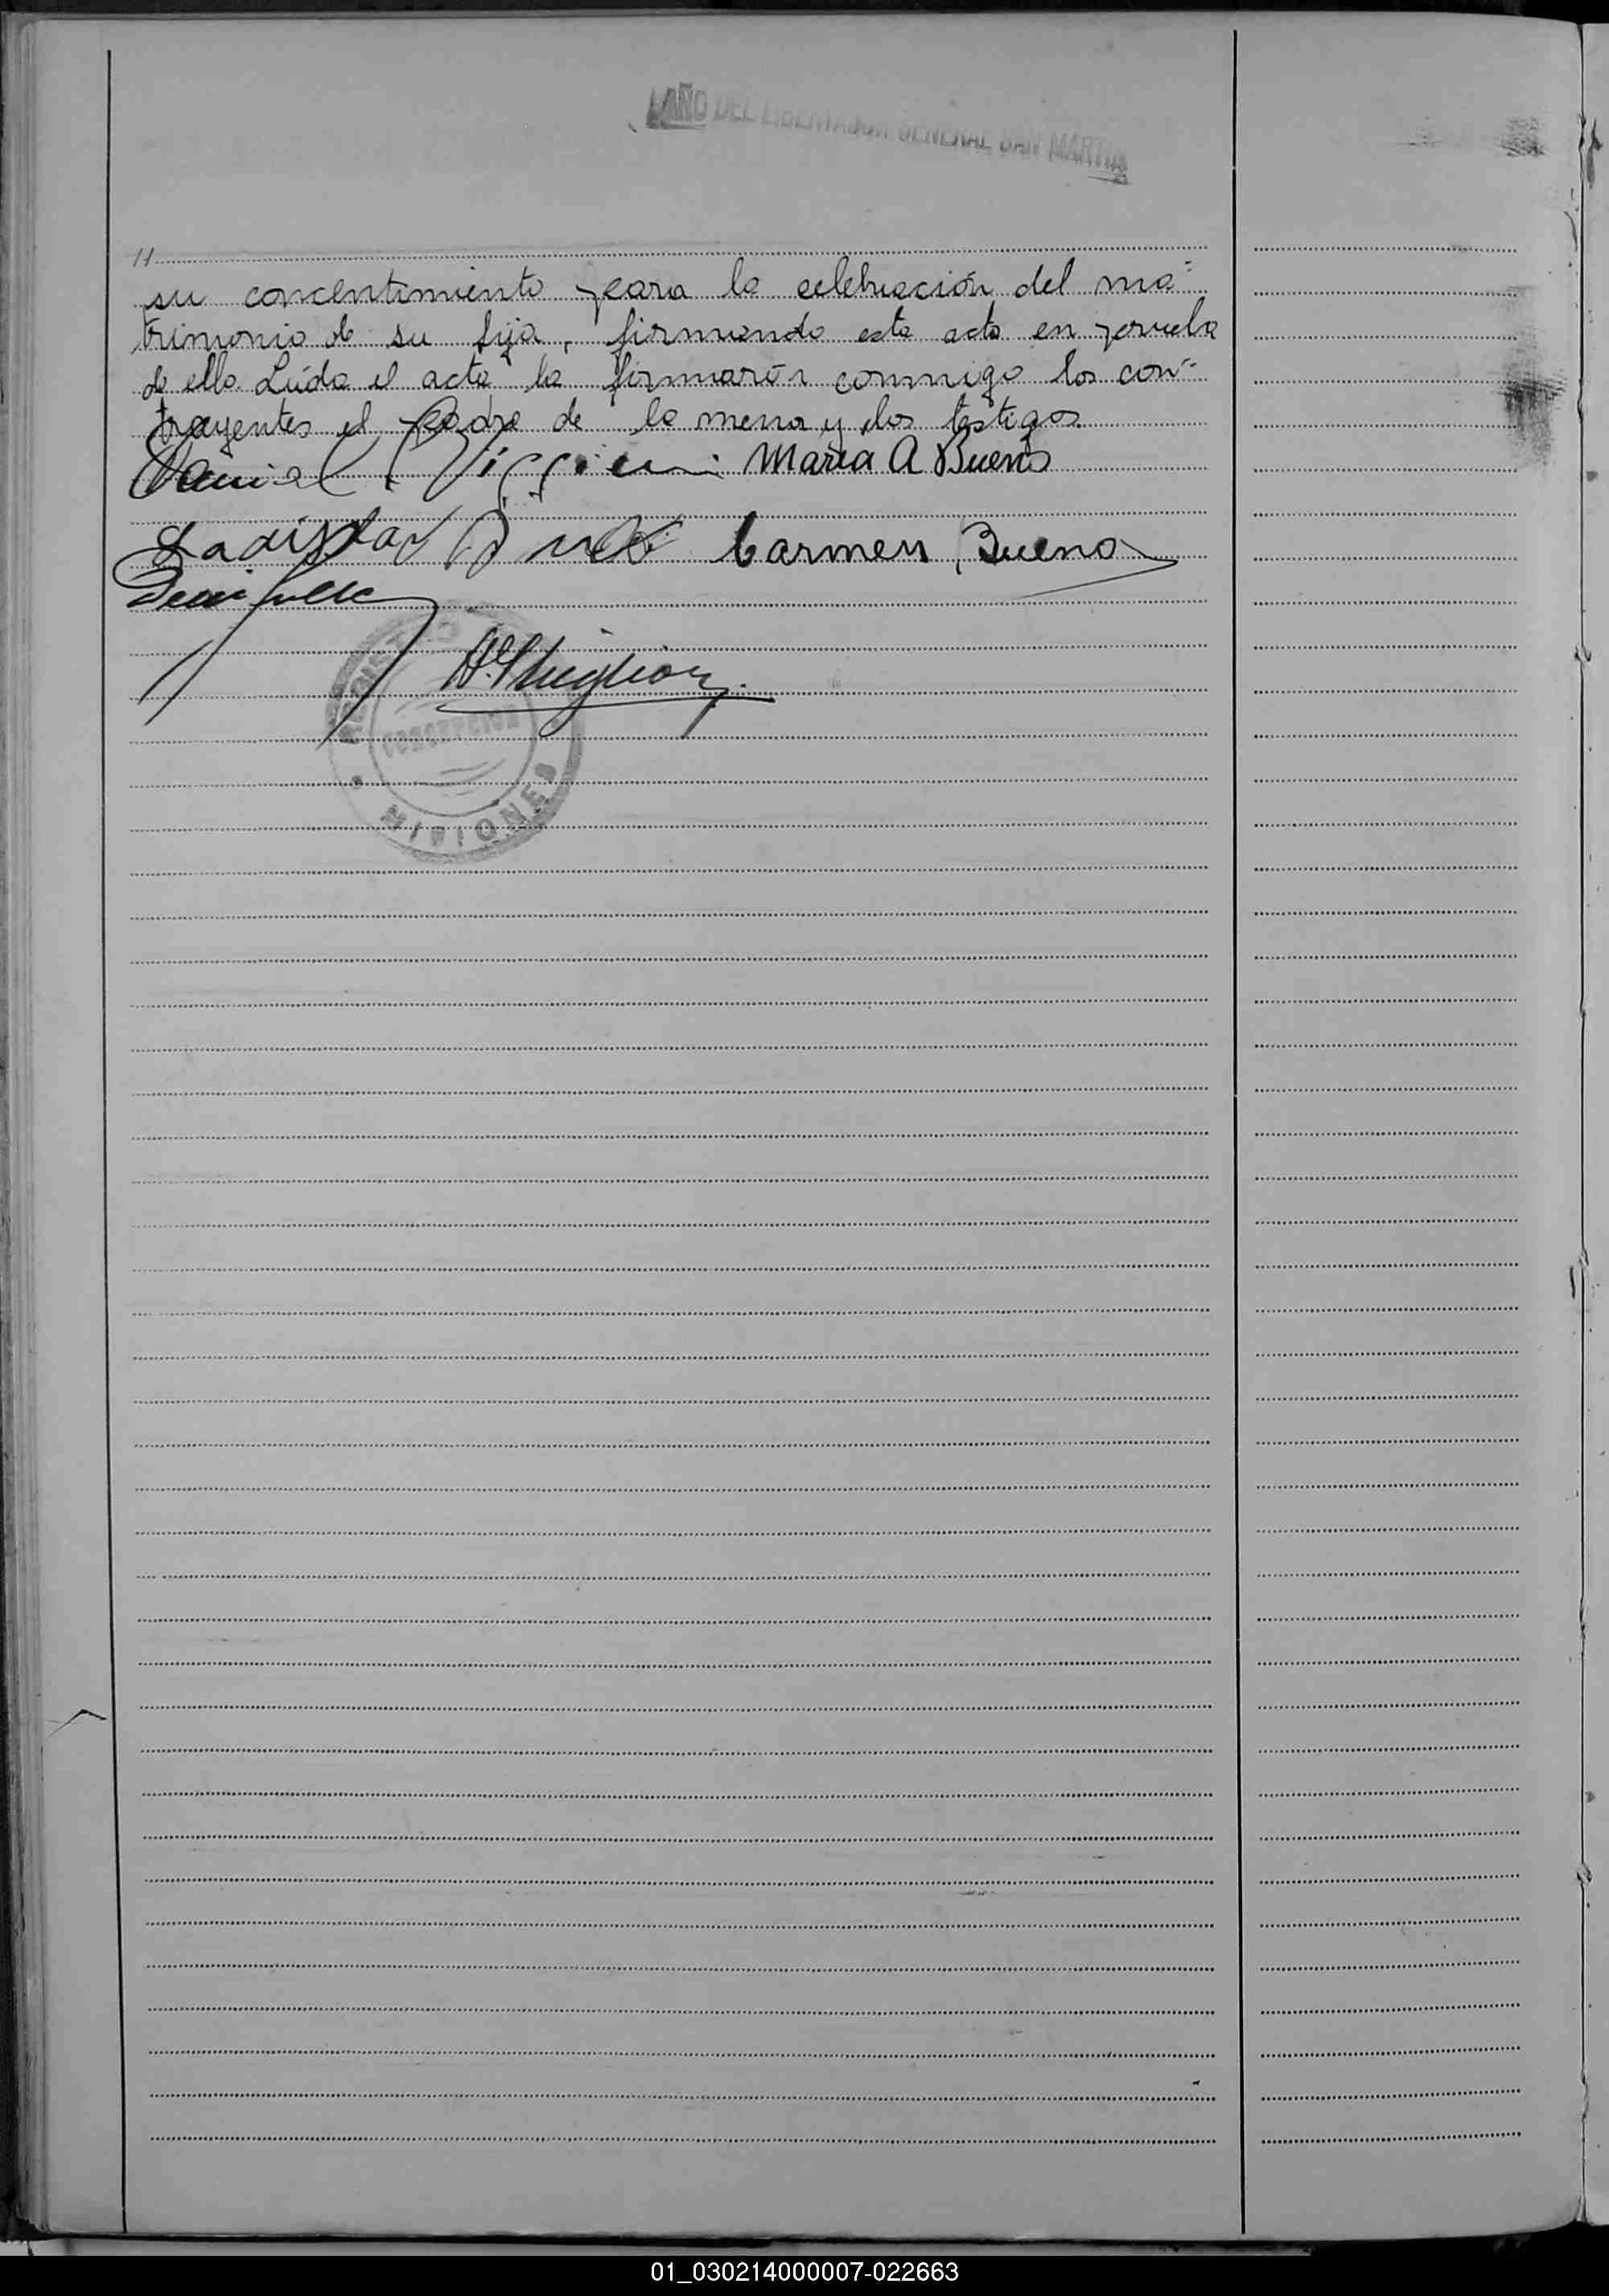 AÑO DEL LIBERTADOR GENERAL SAN MARTIN
//
su concentimiento para la celebración del ma=
trimonio de su hija, firmando esta acta en prueba
de ello. Leída el acta la firmarón conmigo los con=
trayentes el Padre de la menor y los testigos.
Maria A Bueno
Ladislao Carmen Bueno
REGISTRO
CONCEPCION
MISIONES
01_030214000007-022663